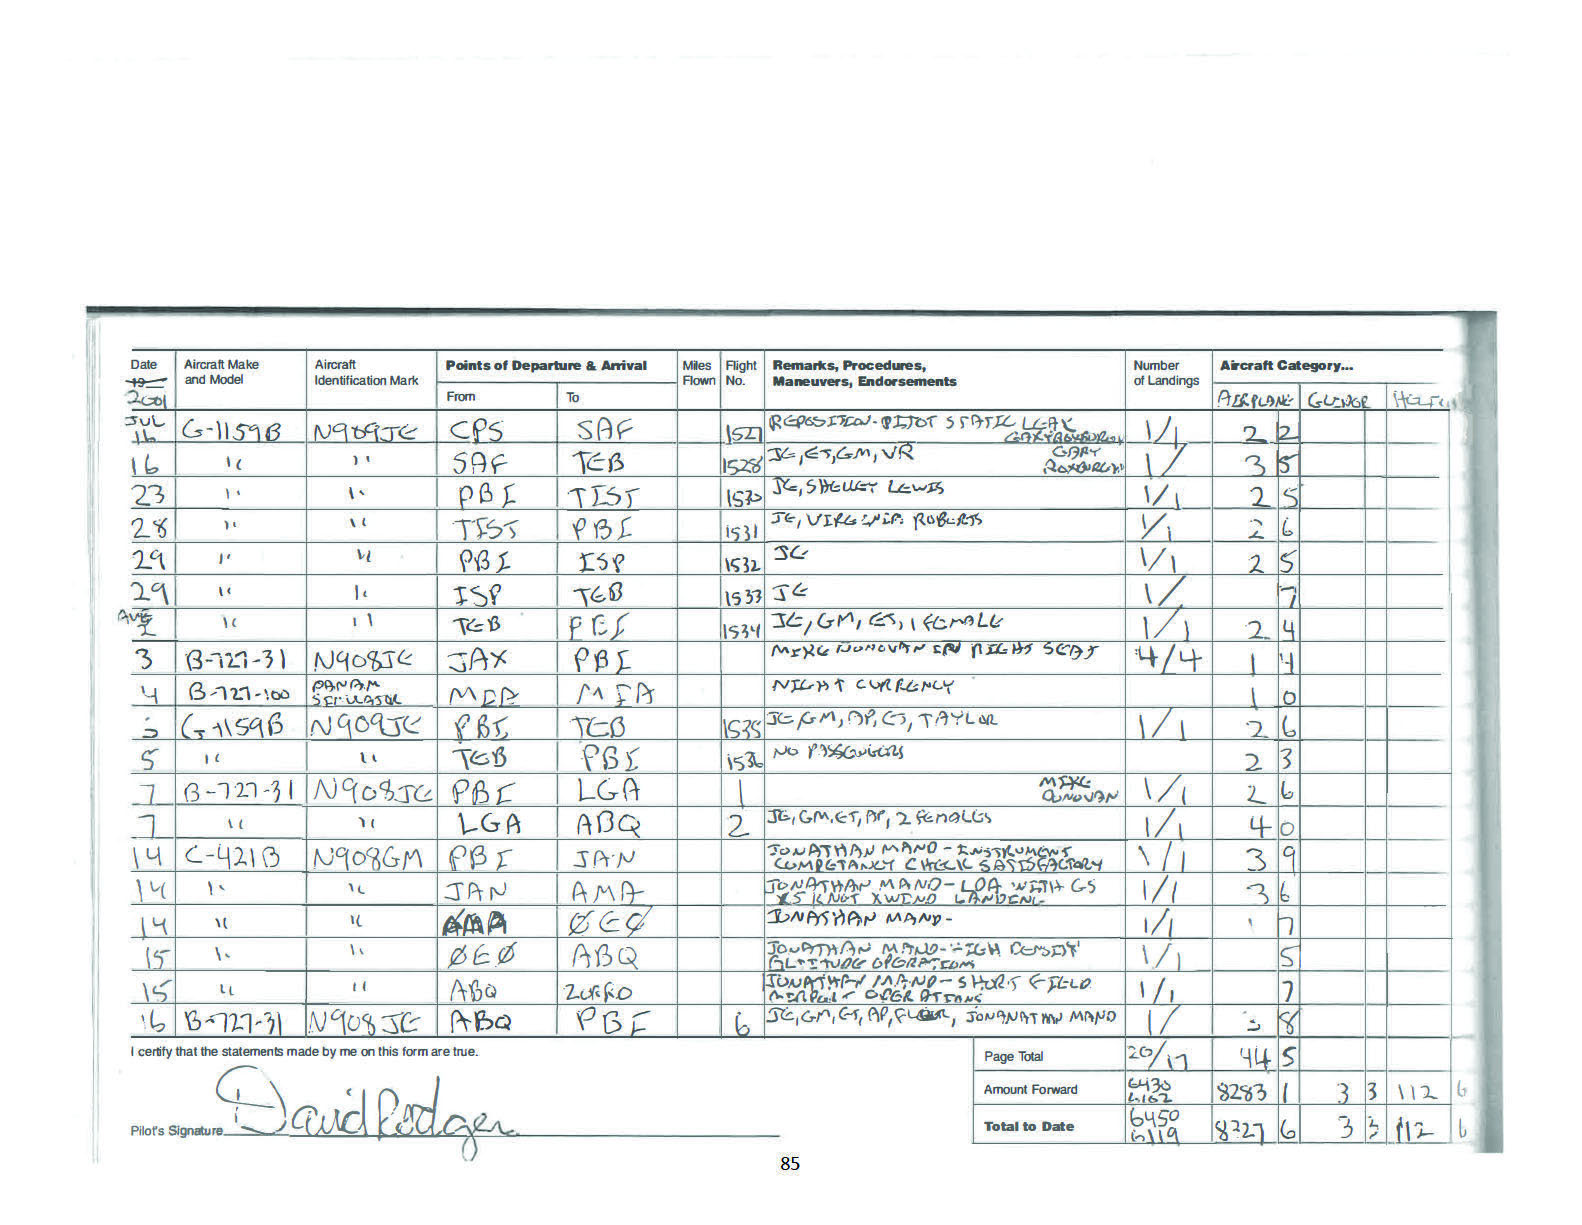 Date Aircraft Make Aircraft Points of Departure & Arrival Miles Flight Remarks, Procedures, Number Aircraft Category...
19 and Model Identification Mark Flown No. Maneuvers, Endorsements of Landings
2001 From To AIRPLANE GLIDER
JUL 16 G-1159B N909JE CPS SAF 1527 REPOSITION - PITOT STATIC LEAK GARY ROXBURGH 1/1 2 2
16 " " SAF TEB 1528 JE, ET, GM, VR GARY ROXBURGH 1/ 3 5
23 " " PBI TIST 1530 JE, SHELLEY LEWIS 1/1 2 5
28 " " TIST PBI 1531 JE, VIRGINIA ROBERTS 1/1 2 6
29 " " PBI ISP 1532 JE 1/1 2 5
29 " " ISP TEB 1533 JE 1/ 7
AUG " " TEB PBI 1534 JE, GM, ET, 1 FEMALE 1/1 2 4
3 B-727-31 N908JE JAX PBI MIKE DONOVAN IN RIGHT SEAT 4/4 1 4
4 B-727-100 PANAM SIMULATOR MIA MIA NIGHT CURRENCY 1 0
5 G-1159B N909JE PBI TEB 1535 JE, GM, AP, ET, TAYLOR 1/1 2 6
5 " " TEB PBI 1536 NO PASSENGERS 2 3
7 B-727-31 N908JE PBI LGA 1 MIKE DONOVAN 1/1 2 6
7 " " LGA ABQ 2 JE, GM, ET, AP, 2 FEMALES 1/1 4 0
14 C-421B N908GM PBI JAN JONATHAN MANO - INSTRUMENT COMPETANCY CHECK SATISFACTORY 1/1 3 9
14 " " JAN AMA JONATHAN MANO - LOA WITH GS KNOT XWIND LANDING 1/1 3 6
14 " " AMA ØEØ JONATHAN MANO - 1/1 7
15 " " ØEØ ABQ JONATHAN MANO - HIGH DENSITY ALTITUDE OPERATIONS 1/1 5
15 " " ABQ ZORRO JONATHAN MANO - SHORT FIELD AIRPORT OPERATIONS 1/1 7
16 B-727-31 N908JE ABQ PBI 6 JE, GM, ET, AP, JONANATHAN MANO 1/ 3 8
I certify that the statements made by me on this form are true. Page Total 20/17 44 5
Amount Forward 6430 6102 8283 1 3 3 112 6
Pilot's Signature David Rodgers Total to Date 6450 6119 8327 6 3 3 112 6
85